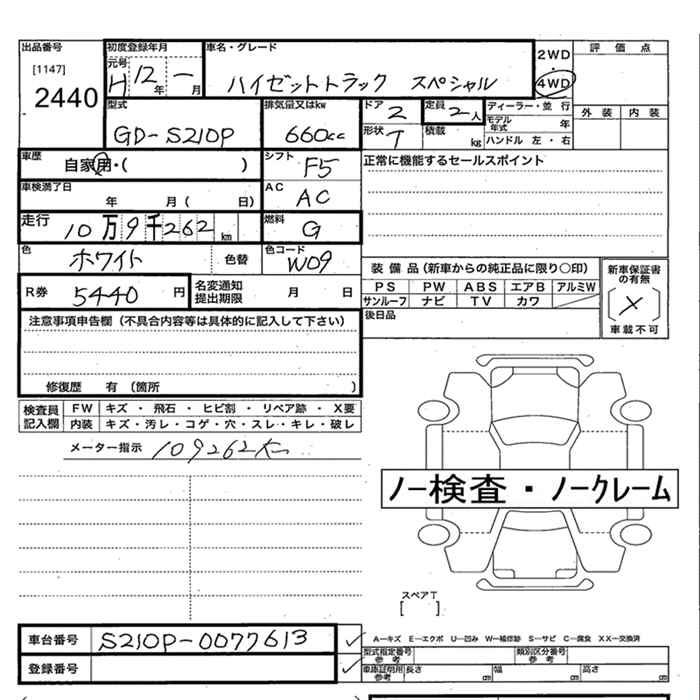 出品番号 初度登録年月 車名・グレード 2WD 評価点
[1147] 元号 H 12 年 一 月 ハイゼットトラック スペシャル ・
2440 4WD
型式 排気量又はkw ドア 2 定員 2 人 ディーラー・並 行 外 装 内 装
GD-S210P 660cc 形状 T 積載 kg モデル年式 年
ハンドル 左 ・ 右
車歴 自家用・( ) シフト F5 正常に機能するセールスポイント
車検満了日 年 月 ( 日) AC AC
走行 10万9千262 km 燃料 G
色 ホワイト 色替 色コード W09
装 備 品 (新車からの純正品に限り○印) 新車保証書の有無
R券 5440 円 名変通知提出期限 月 日 PS PW ABS エアB アルミW
サンルーフ ナビ TV カワ (×)
注意事項申告欄 (不具合内容等は具体的に記入して下さい) 後日品 車載不可
修復歴 有 (箇所 )
検査員記入欄 FW キズ ・ 飛石 ・ ヒビ割 ・ リペア跡 ・ X要
内装 キズ・汚レ・コゲ・穴・スレ・キレ・破レ
メーター指示 109262K
ノー検査・ノークレーム
スペアT
[ ]
車台番号 S210P-0077613 ✓ A―キズ E―エクボ U―凹み W―補修跡 S―サビ C―腐食 XX―交換済
型式指定番号 参考 類別区分番号 参考
登録番号 ✓ 車庫証明用 参考 長さ cm 幅 cm 高さ cm